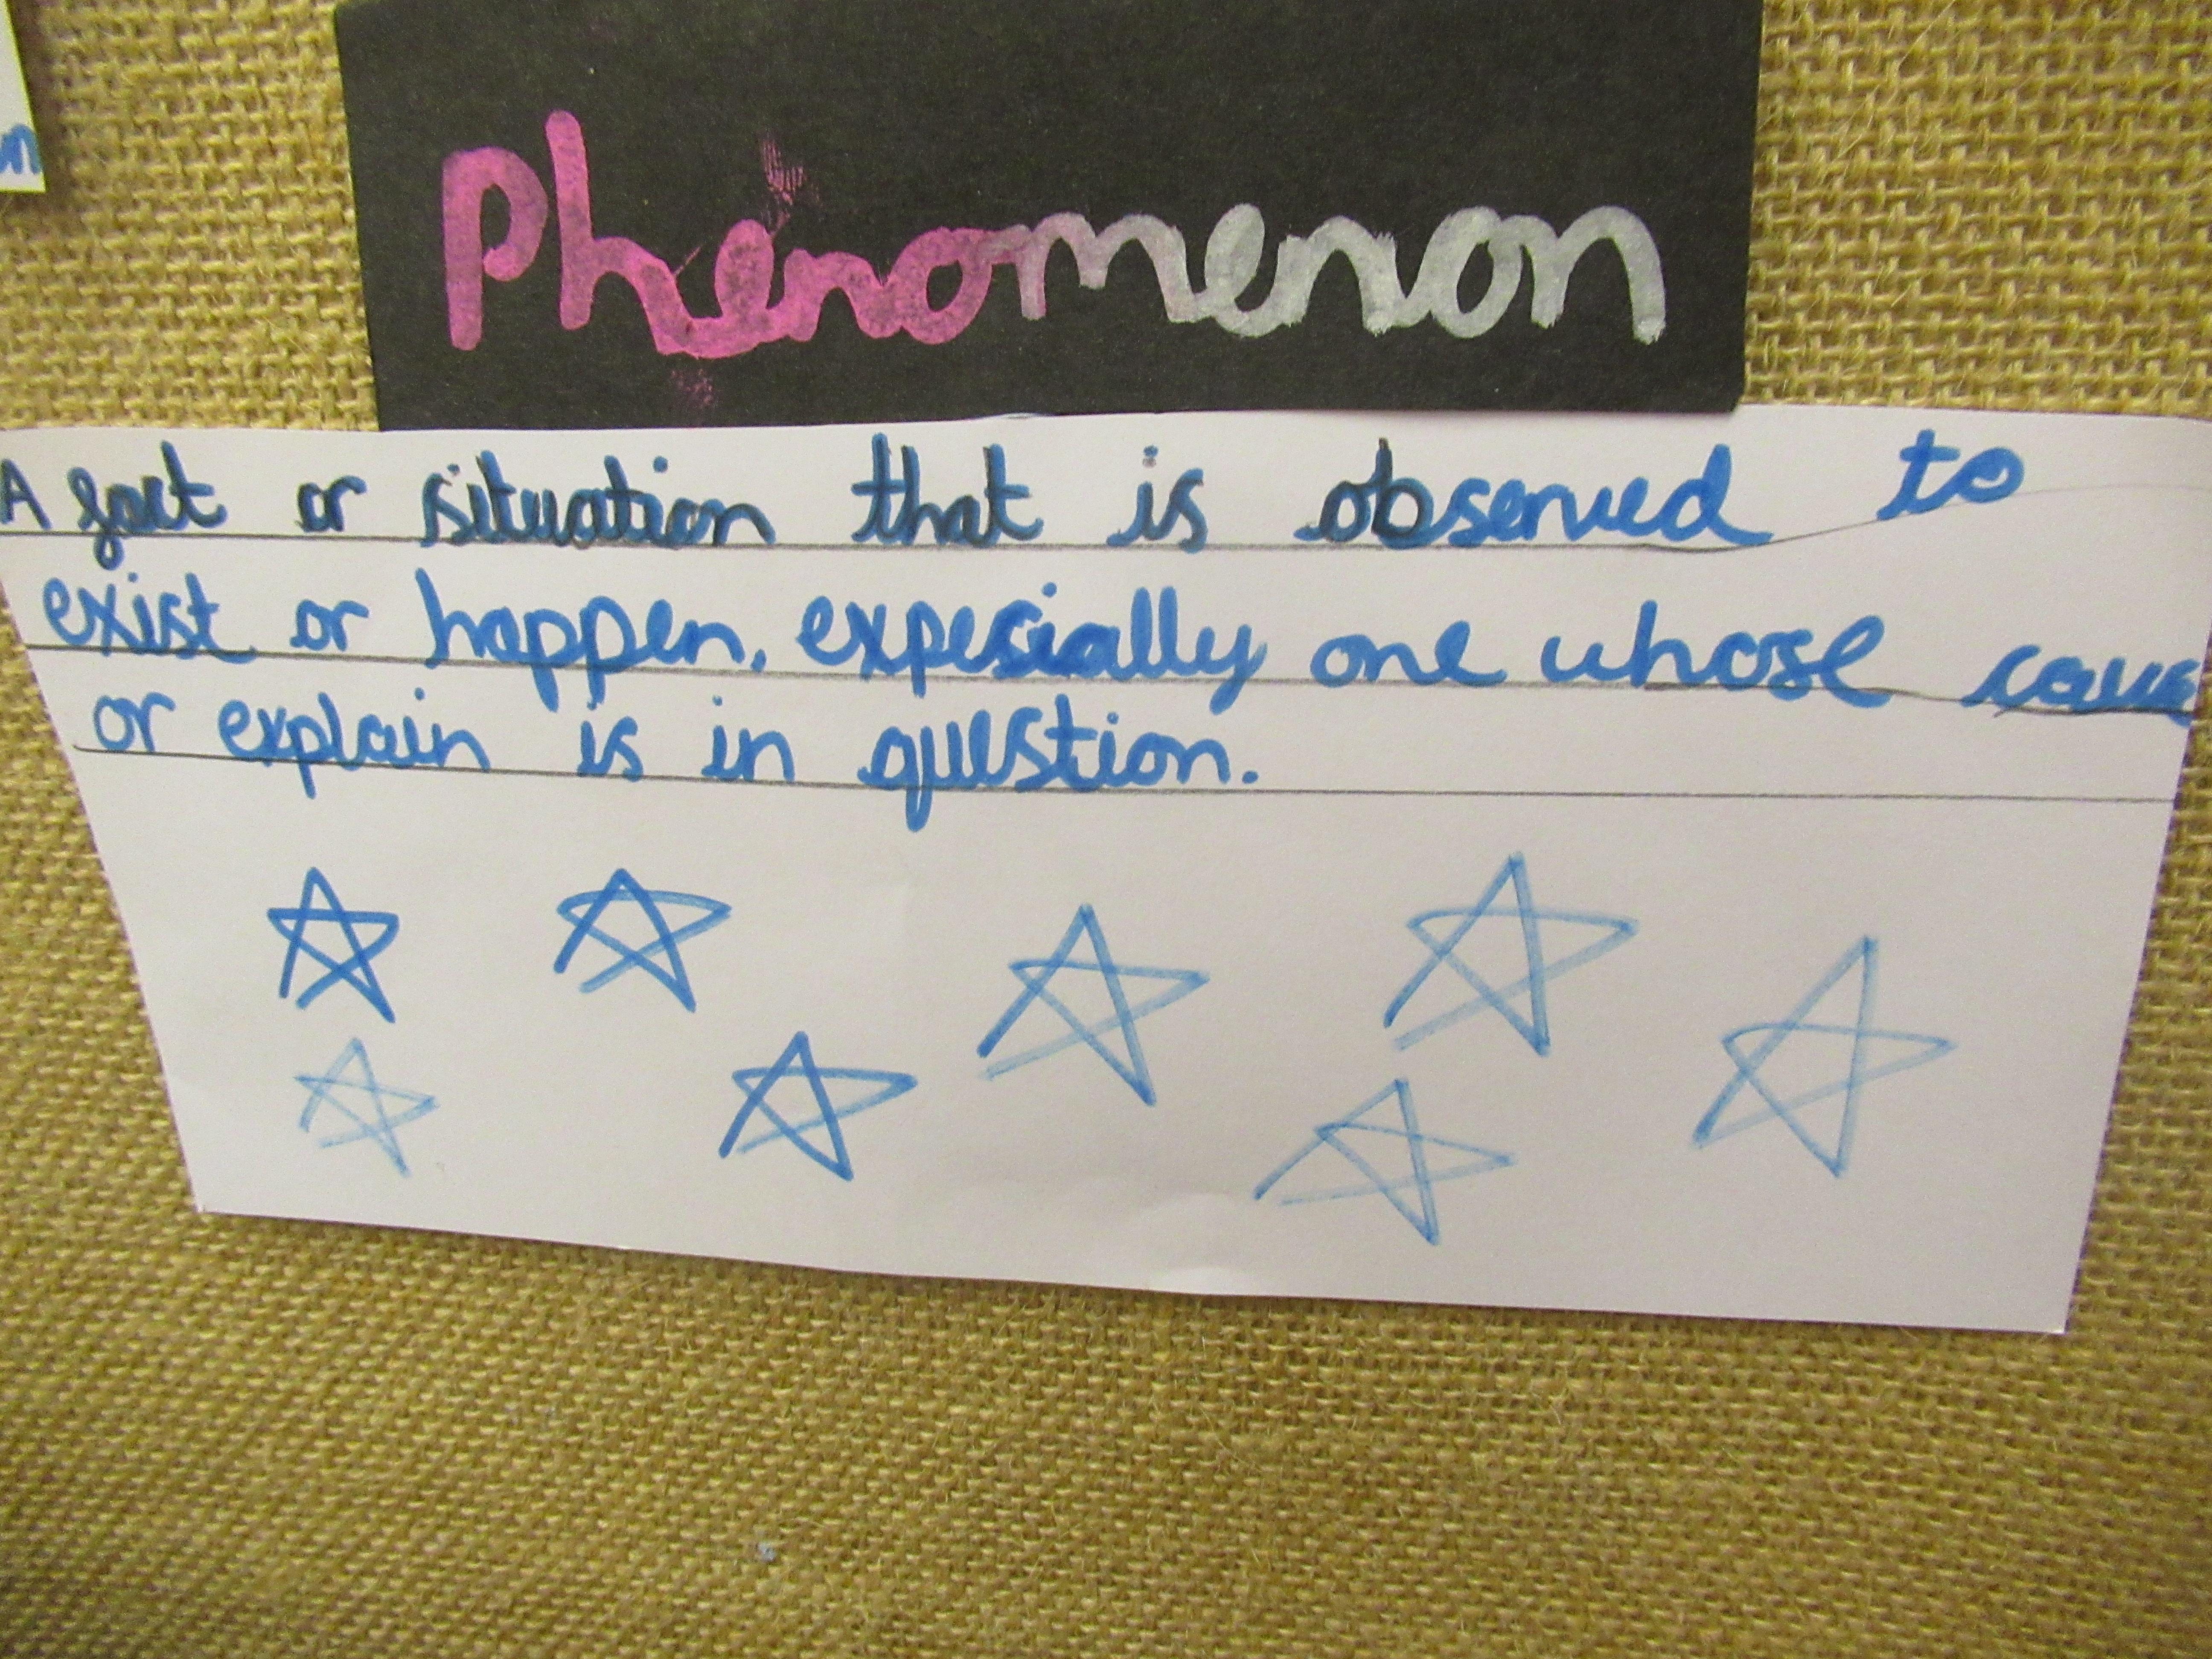 n
Phenomenon
A fact or situation that is observed to
exist or happen, expesially one whose cause
or explain is in question.